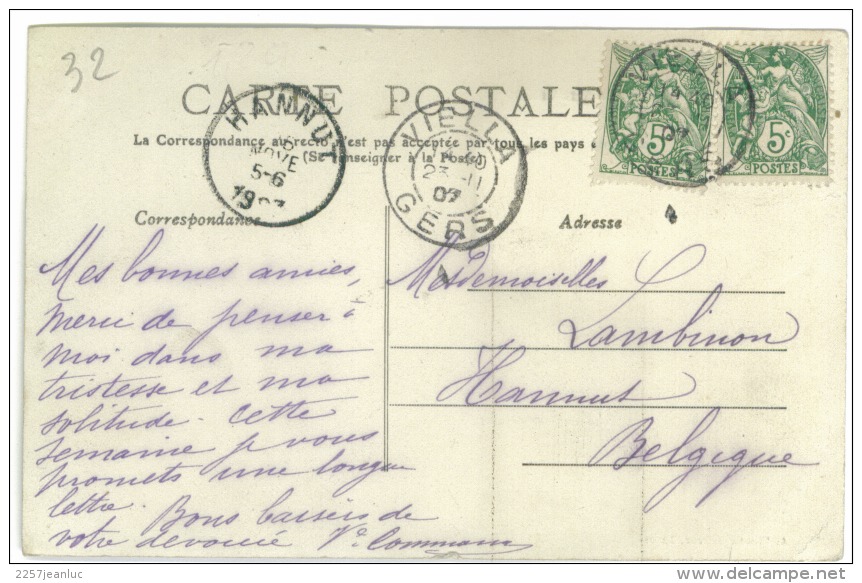 32
CARTE POSTALE
HANNUT
NOVE
5-6
VIELLA
23-11
07
GERS
5c
POSTES
5c
POSTES
La Correspondance au recto n'est pas acceptée par tous les pays
(Se renseigner à la Poste)
Correspondance
Adresse
Mes bonnes amies,
merci de penser à
moi dans ma
tristesse et ma
solitude. Cette
semaine je vous
promets une longue
lettre. Bons baisers de
votre dévouée
Mesdemoiselles
Lambinon
Hannut
Belgique
2257jeanluc
delcampe.net